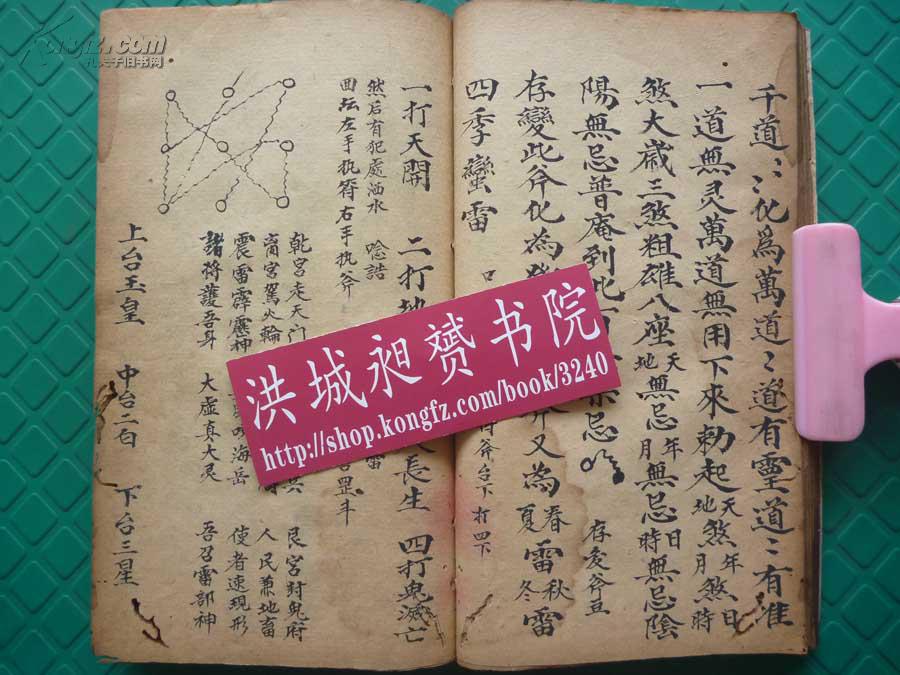 千道〻化爲萬道〻道有靈道〻有准
一道無灵萬道無用下來勅起天煞年煞日
地煞月煞時
煞大歲三煞粗雄八座天無忌年無忌日無忌陰
地無忌月無忌時
陽無忌普庵到此
忌
存変斧豆
存變此斧化為
斧又為春雷秋雷
夏 冬
四季蠻雷
斧台下打四下
一打天開 二打地
長生 四打鬼滅亡
然后有犯處洒水 唸誥
回坛左手执符右手执斧
罡斗
乾宮走天门
艮宮封鬼府
离宮駕火輪
人民兼地畜
震雷霹靂神
海岳
使者速現形
諸將護吾身 大虚真大灵
吾召雷部神
上台玉皇 中台二白 下台三星
洪城昶赟书院
http://shop.kongfz.com/book/3240
Kongfz.com
孔夫子旧书网